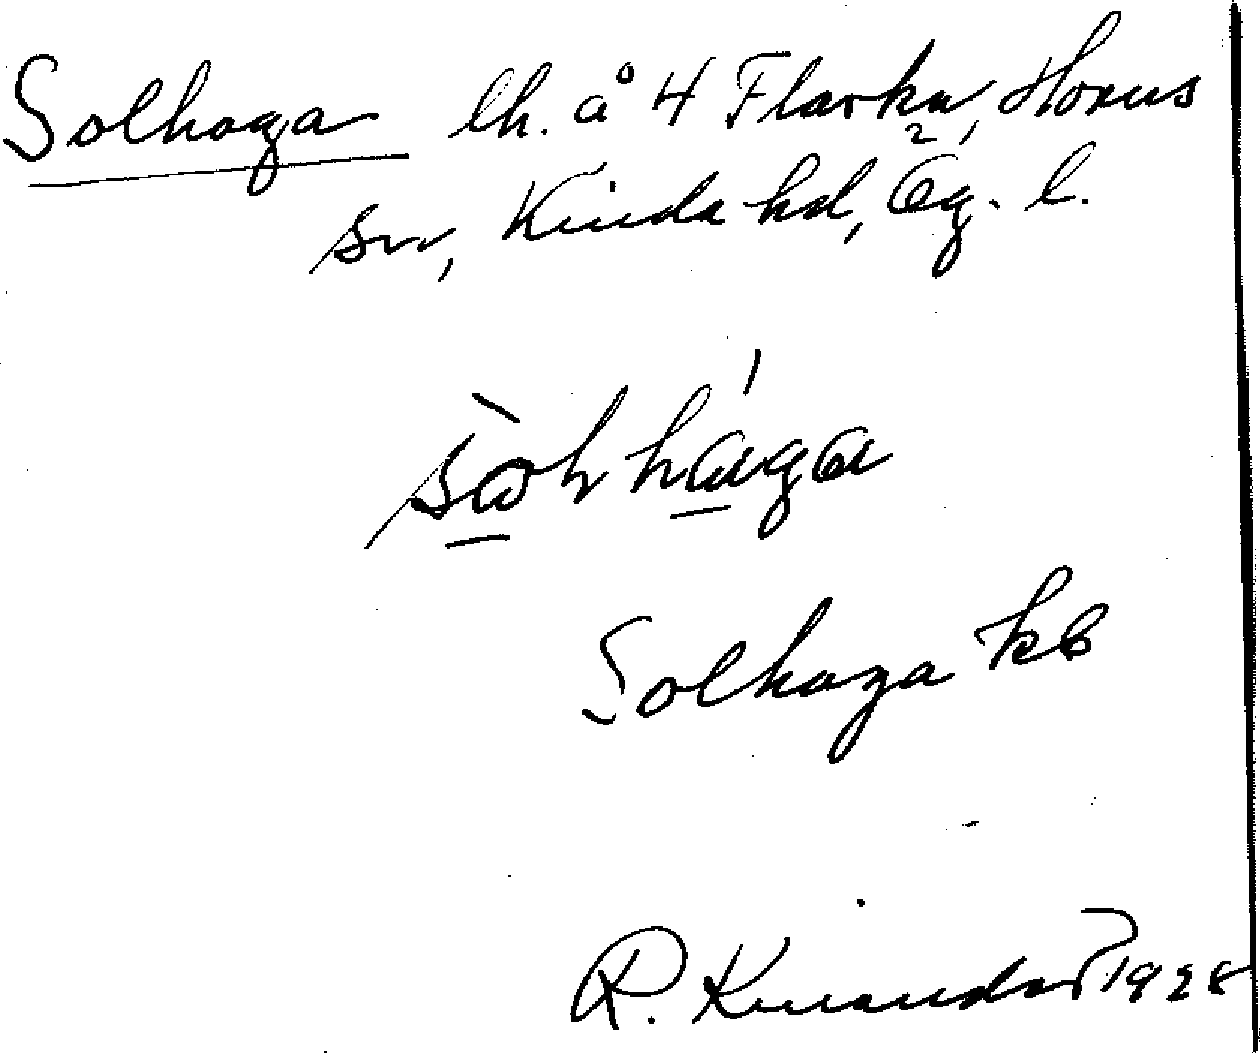 Solhaga lh. å 4 Flarka, Horns
sn, Kinda hd, Ög. l.
Solhaga kb
R. 1928